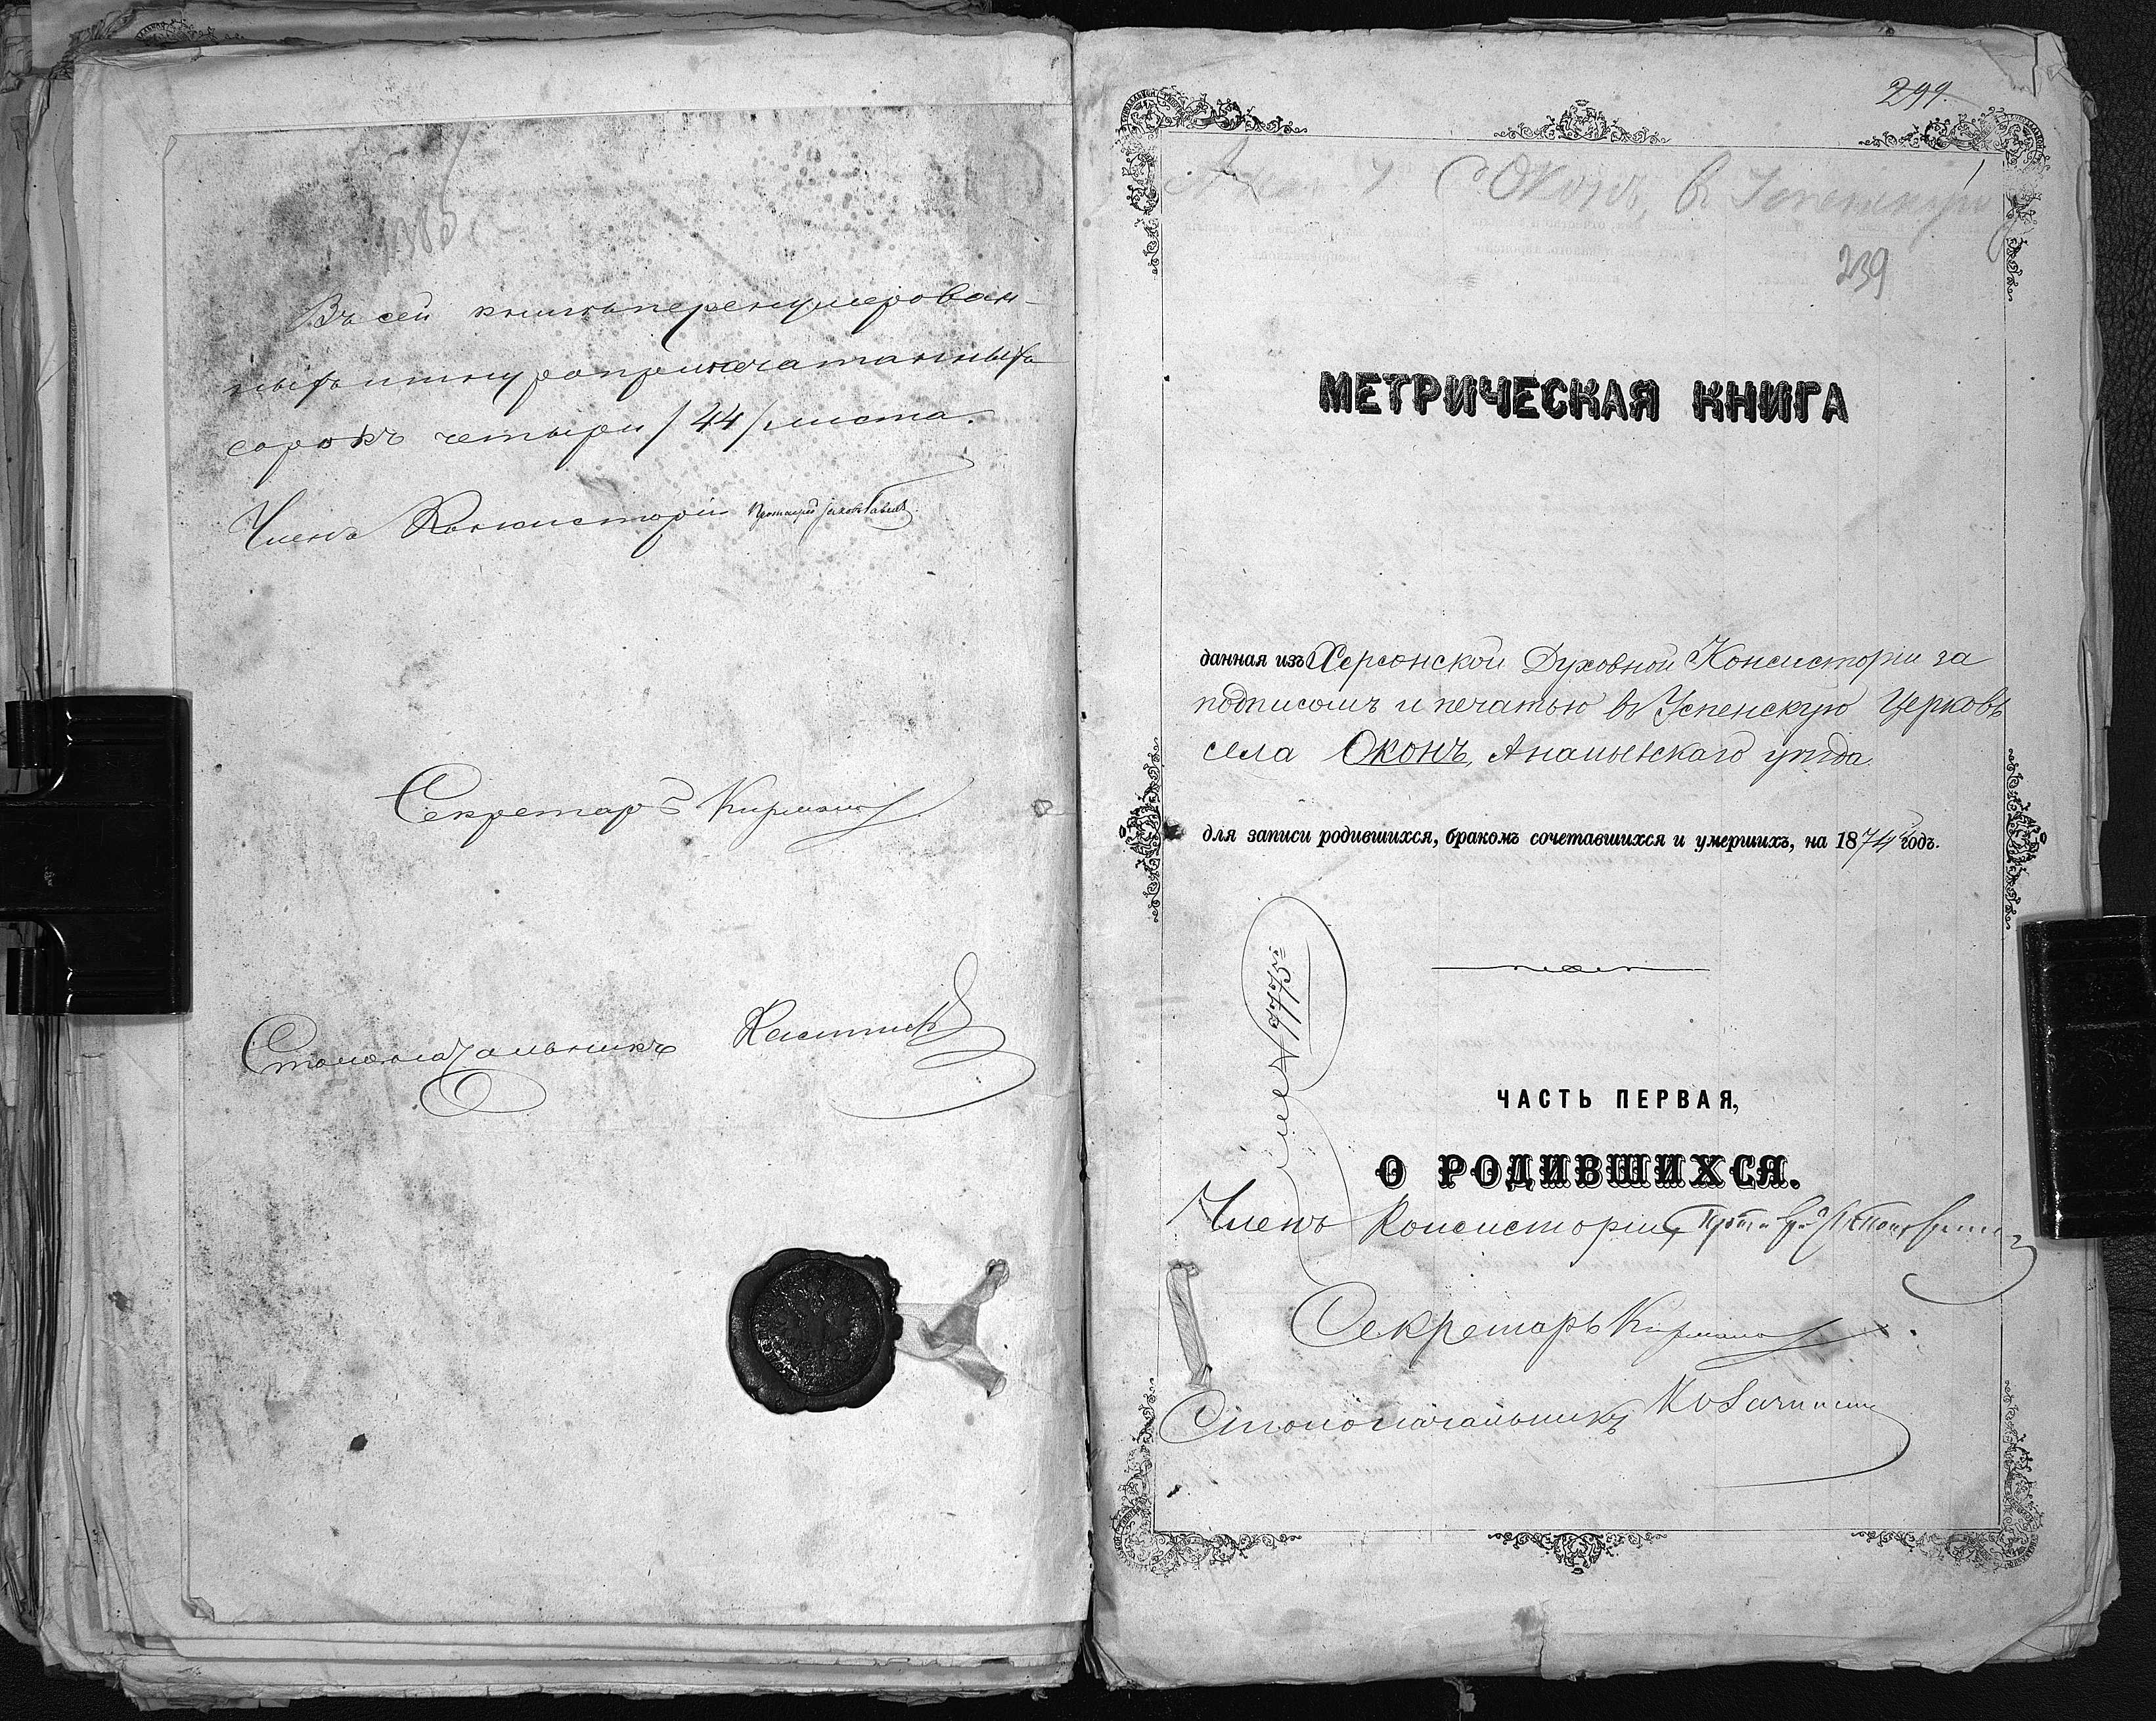 Въ сей книгѣ перенумерован-
ныхъ и шнуроприпечатанныхъ
сорокъ четыри /44/ листа.
Членъ Консисторіи Протоіерей
Секретарь
Столоначальникъ
299.
С Окнъ, в Успенскую
239
МЕТРИЧЕСКАЯ КНИГА
данная изъ Херсонской Духовной Консисторіи за
подписомъ и печатью въ Успенскую Церковь
села Оконъ, Ананьевскаго уѣзда
для записи родившихся, бракомъ сочетавшихся и умершихъ, на 1874й годъ.
№ 7775
ЧАСТЬ ПЕРВАЯ,
О РОДИВШИХСЯ.
Членъ Консисторіи,
Секретарь
Столоначальникъ